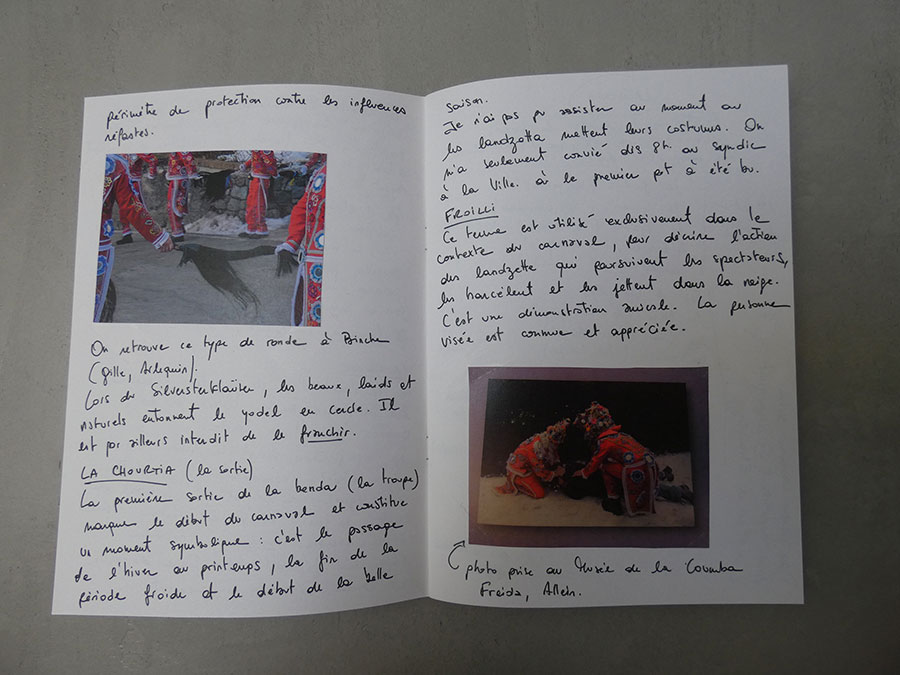 périmètre de protection contre les influences
néfastes.
On retrouve ce type de ronde à Binche
(Gille, Arlequin).
Lors du Silvesterkläuse, les beaux, laids et
naturels entonnent le yodel en cercle. Il
est par ailleurs interdit de le franchir.
LA CHOURTIA (la sortie)
La première sortie de la benda (la troupe)
marque le début du carnaval et constitue
un moment symbolique : c'est le passage
de l'hiver au printemps, la fin de la
période froide et le début de la belle
saison.
Je n'ai pas pu assister au moment où
les landzetta mettent leurs costumes. On
m'a seulement convié dès 8h. au syndic
à la Ville. où le premier pot à été bu.
FROILLI
Ce terme est utilisé exclusivement dans le
contexte du carnaval, pour décrire l'action
des landzette qui poursuivent les spectateurs,
les harcèlent et les jettent dans la neige.
C'est une démonstration amicale. La personne
visée est connue et appréciée.
photo prise au Musée de la Coumba
Freida, Allein.